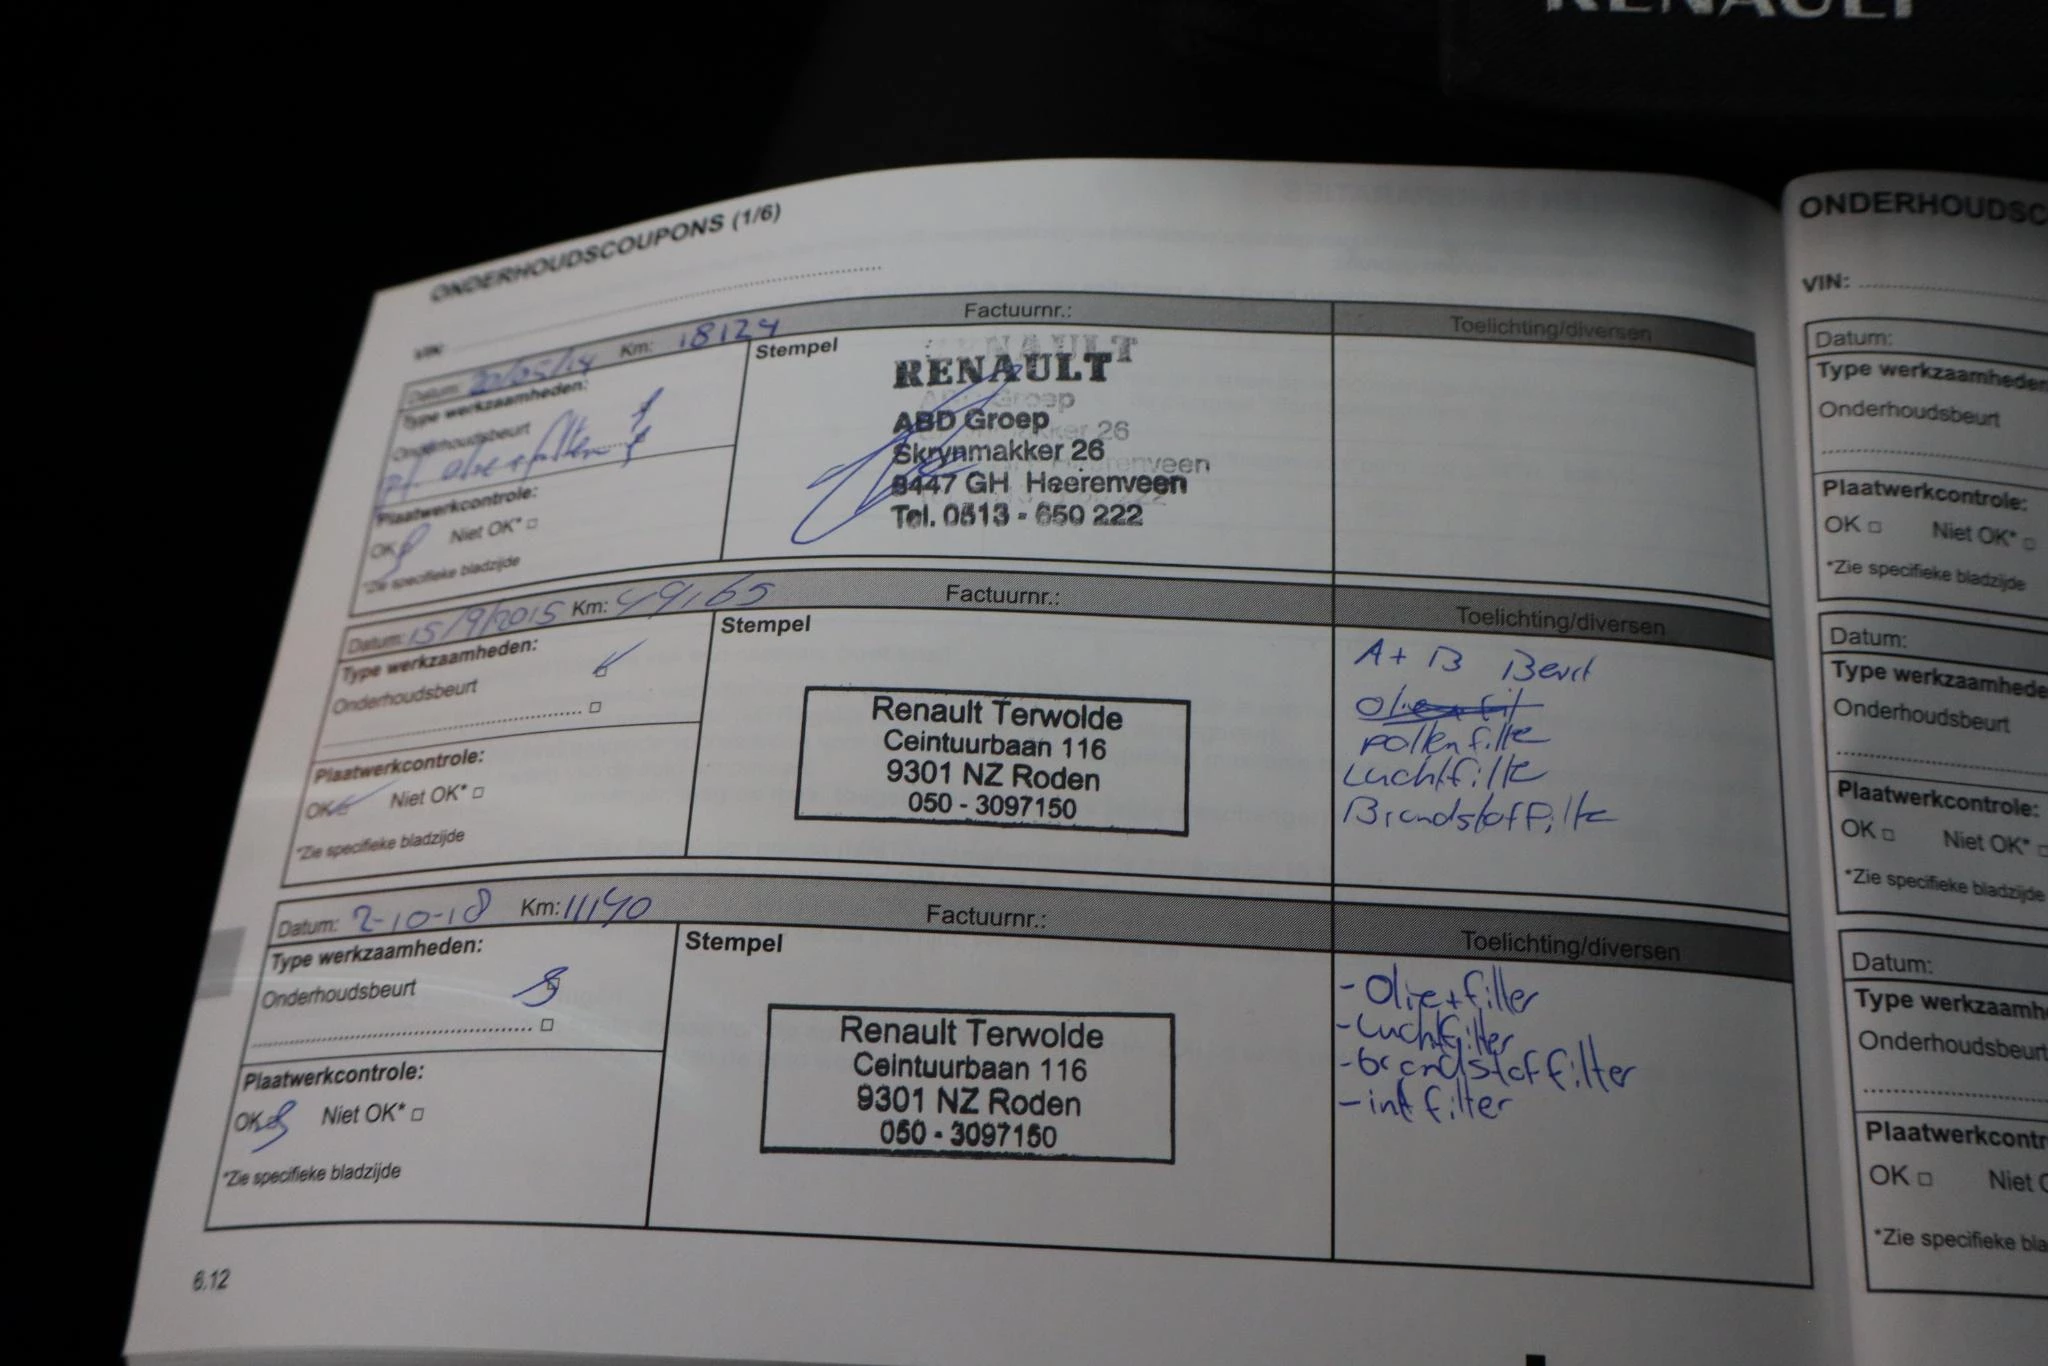 RENAULT
ONDERHOUDSCOUPONS (1/6)
VIN:
Datum: 20/05/14 Km: 18124 Factuurnr.: Toelichting/diversen
Type werkzaamheden:
Stempel
Onderhoudsbeurt
olie + filter
Plaatwerkcontrole:
OK Niet OK*
*Zie specifieke bladzijde
RENAULT
ABD Groep
Skrynmakker 26
8447 GH Heerenveen
Tel. 0513 - 650 222
Datum: 15/9/2015 Km: 49165 Factuurnr.: Toelichting/diversen
Type werkzaamheden:
Stempel
Onderhoudsbeurt
Plaatwerkcontrole:
OK Niet OK*
*Zie specifieke bladzijde
Renault Terwolde
Ceintuurbaan 116
9301 NZ Roden
050 - 3097150
A + B Beurt
pollenfilte
Luchtfilte
Brandstoffilte
Datum: 2-10-18 Km: 11140 Factuurnr.: Toelichting/diversen
Type werkzaamheden:
Stempel
Onderhoudsbeurt
Plaatwerkcontrole:
OK Niet OK*
*Zie specifieke bladzijde
Renault Terwolde
Ceintuurbaan 116
9301 NZ Roden
050 - 3097150
- Olie + filter
- Luchtfilter
- brandstoffilter
- int filter
6.12
ONDERHOUDSC
VIN:
Datum:
Type werkzaamheden
Onderhoudsbeurt
Plaatwerkcontrole:
OK Niet OK*
*Zie specifieke bladzijde
Datum:
Type werkzaamhede
Onderhoudsbeurt
Plaatwerkcontrole:
OK Niet OK*
*Zie specifieke bladzijde
Datum:
Type werkzaamh
Onderhoudsbeurt
Plaatwerkcontr
OK Niet O
*Zie specifieke bla